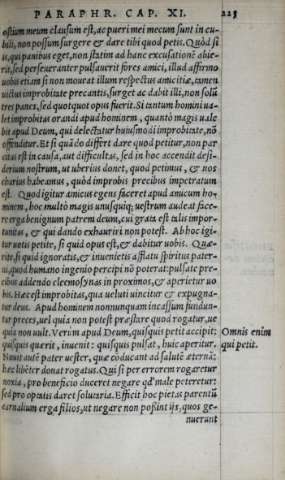 PARAPHR. CAP. XI. 225
ostium meum clausum est, ac pueri mei mecum sunt in cu-
bili, non possum surgere & dare tibi quod petis. Quòd si
is, qui panibus eget, non statim ad hanc excusationē abie-
rit, sed perseueranter pulsauerit fores amici, illud affirmo
uobis etiam si non moueat illum respectus amicitiæ, tamen
uictus improbitate precantis, surget ac dabit illi, non solū
tres panes, sed quotquot opus fuerit. Si tantum homini ua-
let improbitas orandi apud hominem, quantò magis uale
bit apud Deum, qui delectatur huiusmodi improbitate, nō
offenditur. Et si quādo differt dare quod petitur, non par
citas est in causa, aut difficultas, sed in hoc accendit desi-
derium nostrum, ut uberius donet, quod petimus, & nos
charius habeamus, quòd improbis precibus impetratum
est. Quod igitur amicus egens faceret apud amicum ho-
minem, hoc multò magis unusquisq; uestrum audeat face-
re erga benignum patrem deum, cui grata est talis impor-
tunitas, & qui dando exhauriri non potest. Ab hoc igi-
tur uotis petite, si quid opus est, & dabitur uobis. Quæ-
rite, si quid ignoratis, & inuenietis afflatu spiritus pater-
ni, quod humano ingenio percipi nō poterat: pulsate pre-
cibus addendo eleemosynas in proximos, & aperietur uo
bis. Hæc est improbitas, qua ueluti uincitur & expugna-
tur deus. Apud hominem nonnunquam incassum fundun-
tur preces, uel quia non potest præstare quod rogatur, ue
quia non uult. Verùm apud Deum, quisquis petit accipit:
quisquis quærit, inuenit: quisquis pulsat, huic aperitur.
Nouit autē pater uester, quæ cōducant ad salutē æternā:
hæc libēter donat rogatus. Qui si per errorem rogaretur
noxia, pro beneficio duceret negare qđ malè peteretur:
sed pro optatis daret salutaria. Efficit hoc pietas parentū
carnalium erga filios, ut negare non possint ijs, quos ge-
nuerunt
Omnis enim
qui petit.